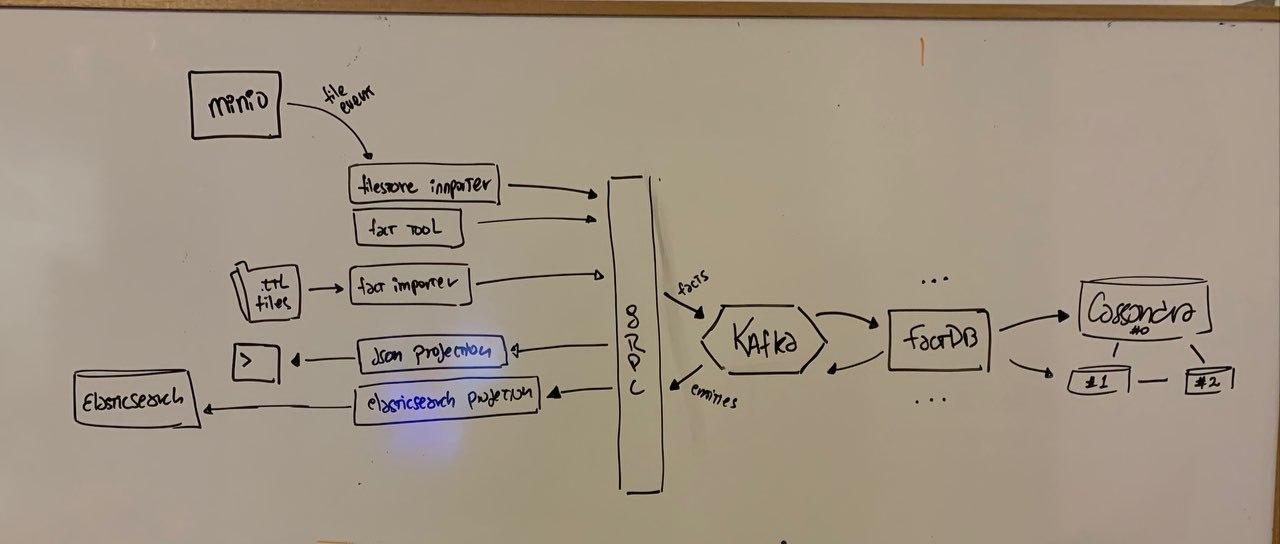 minio
file
event
filestore importer
fact TOOL
.TTL
files
fact importer
>
Json projection
Elasticsearch
elasticsearch projection
gRPC
facts
entities
KAfka
...
factDB
...
Cassandra
#0
#1
#2